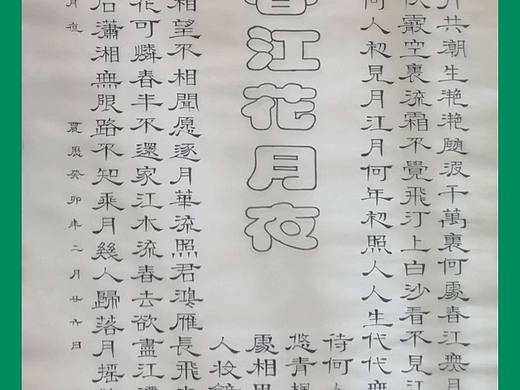 月共潮生滟滟随波千萬裏何處春江無
霰空裏流霜不覺飛汀上白沙看不見江
何人初見月江月何年初照人人生代代
春江花月夜
待何人
悠青楓
處相思
人妝鏡
相望不相聞愿逐月華流照君鴻雁長飛
花可憐春半不還家江水流春去欲盡江潭
石瀟湘無限路不知乘月幾人歸落月搖
月夜
癸卯年二月廿六日